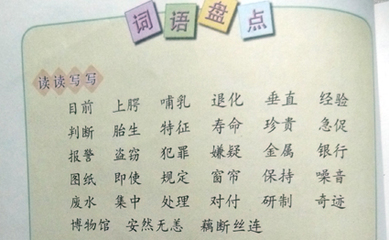 词语盘点
读读写写
目前 上腭 哺乳 退化 垂直 经验
判断 胎生 特征 寿命 珍贵 急促
报警 盗窃 犯罪 嫌疑 金属 银行
图纸 即使 规定 窗帘 保持 噪音
废水 集中 处理 对付 研制 奇迹
博物馆 安然无恙 藕断丝连